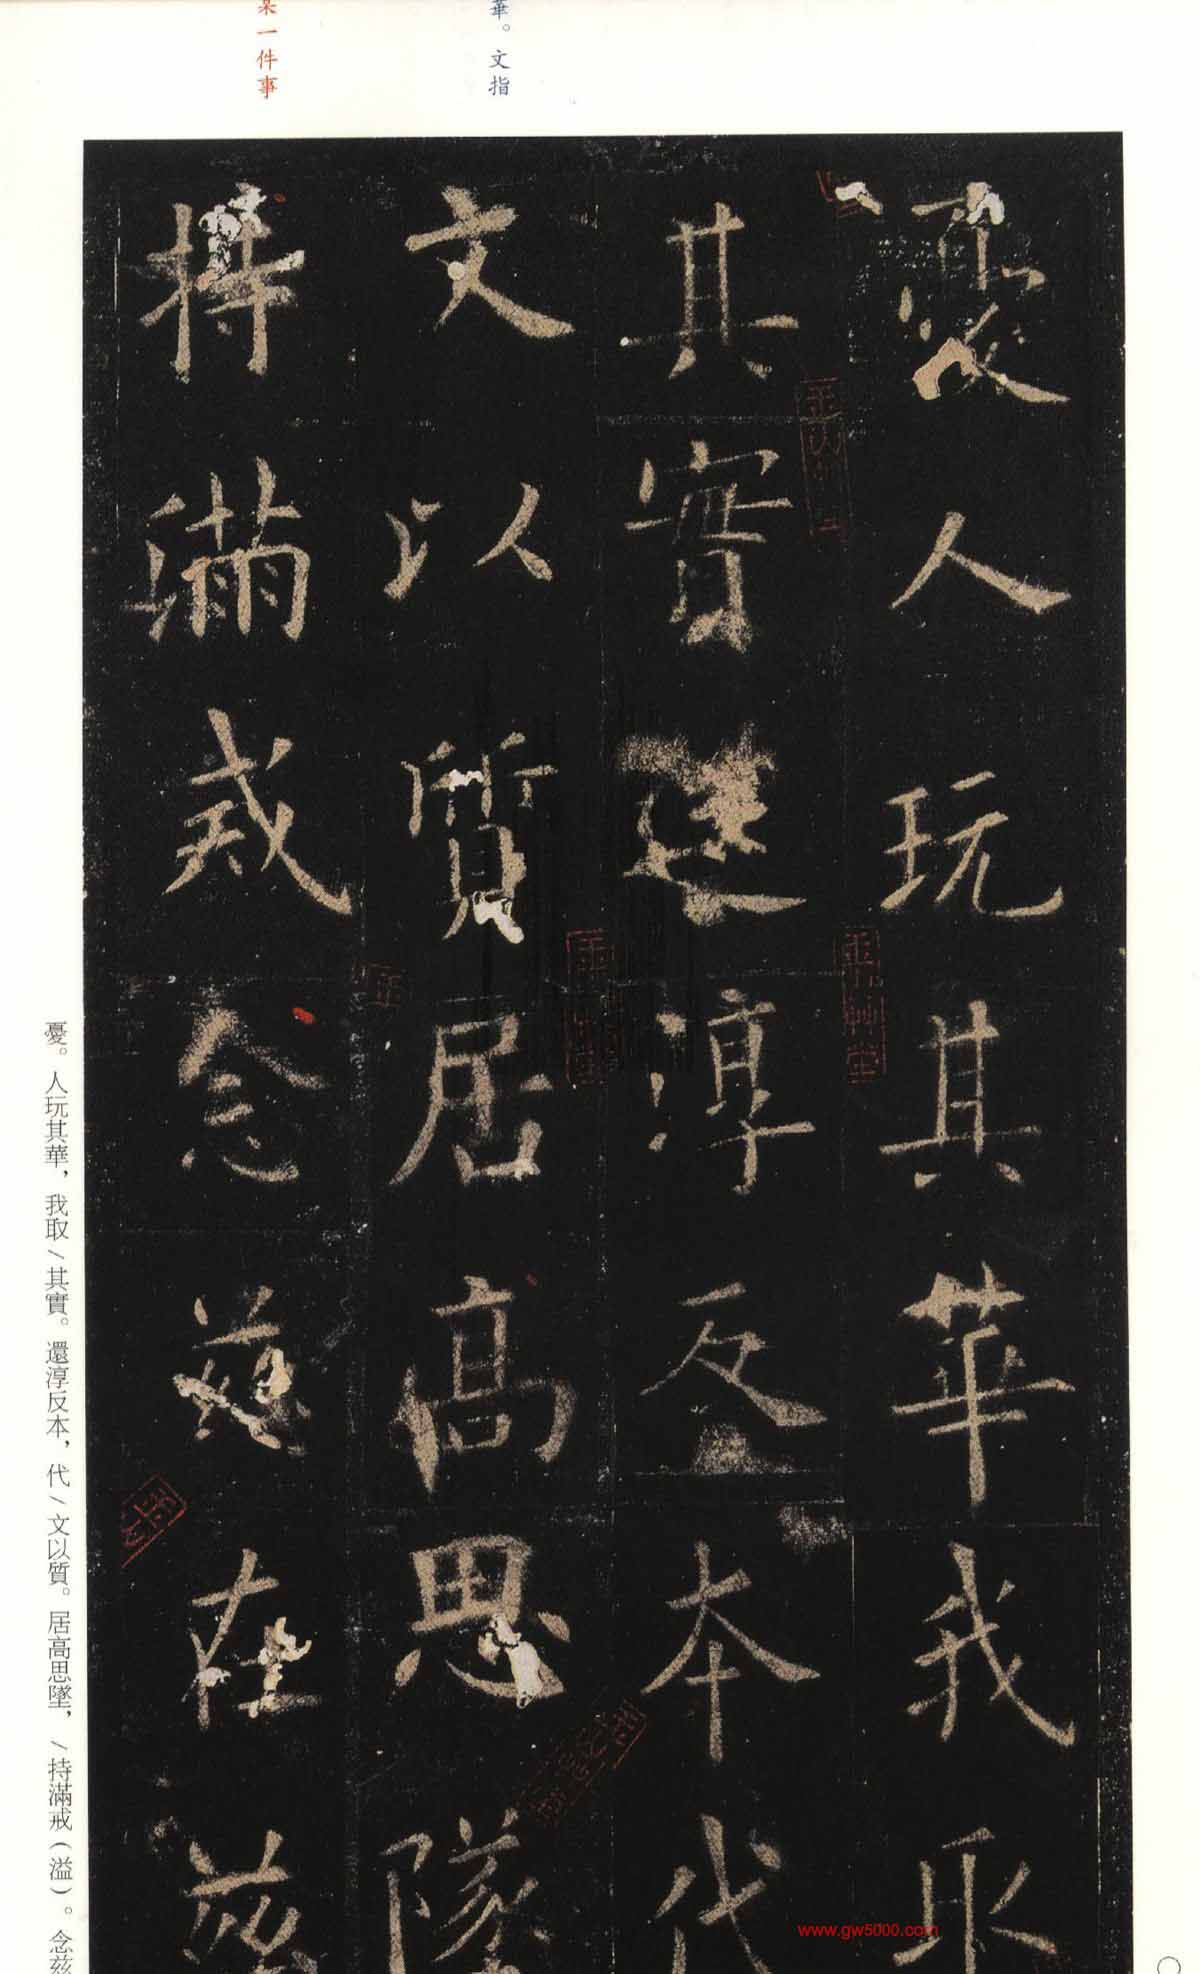 華。文指
某一件事
憂
人玩其華我取
其實還淳反本代
文以質居高思墜
持滿戒念茲在茲
憂。人玩其華，我取/其實。還淳反本，代/文以質。居高思墜，/持滿戒（溢）。念茲
www.gw5000.com